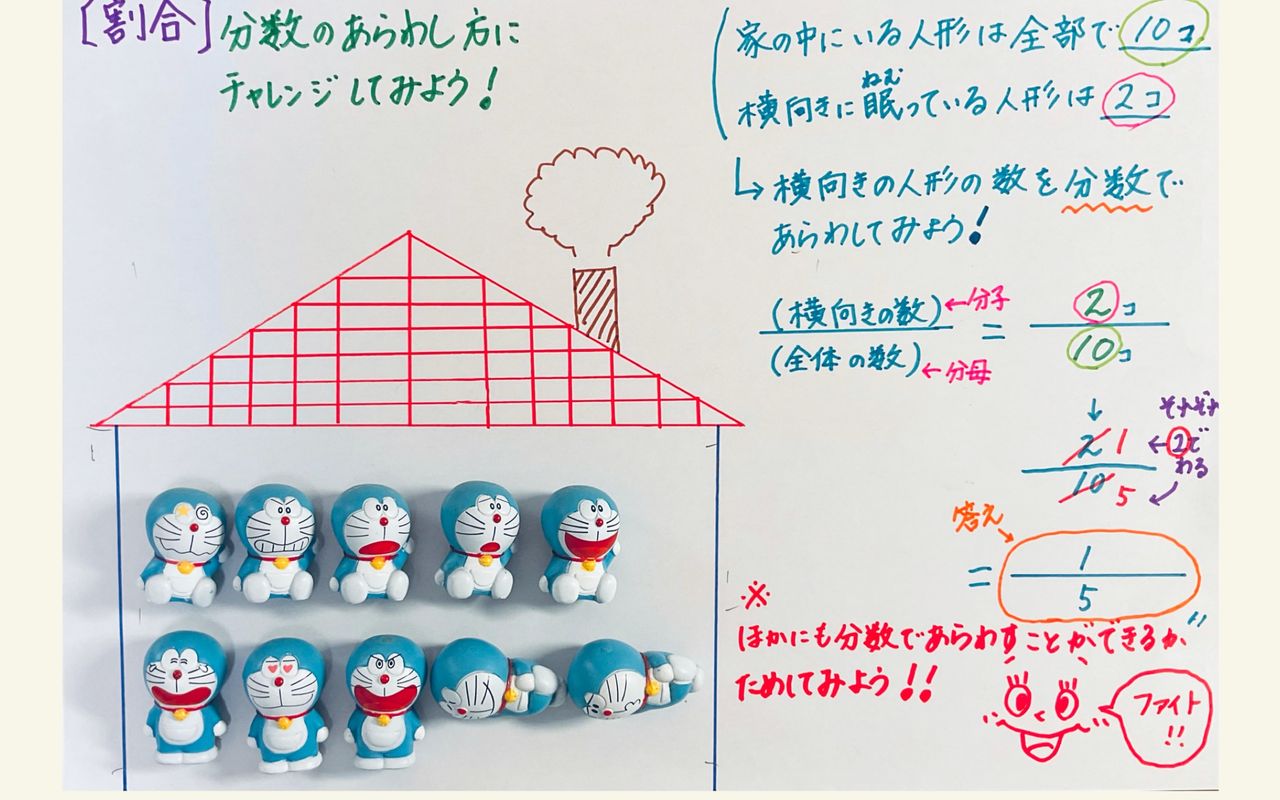 [割合] 分数のあらわし方に
チャレンジしてみよう!
家の中にいる人形は全部で 10コ
ねむ
横向きに眠っている人形は 2コ
↳横向きの人形の数を分数で
あらわしてみよう!
(横向きの数) ←分子 = 2コ
(全体の数) ←分母 10コ
↓ それぞれ
2 1 ←2で
わる
10 5
答え
= 1
5
※
ほかにも分数であらわすことができるか
ためしてみよう!!
ファイト
!!